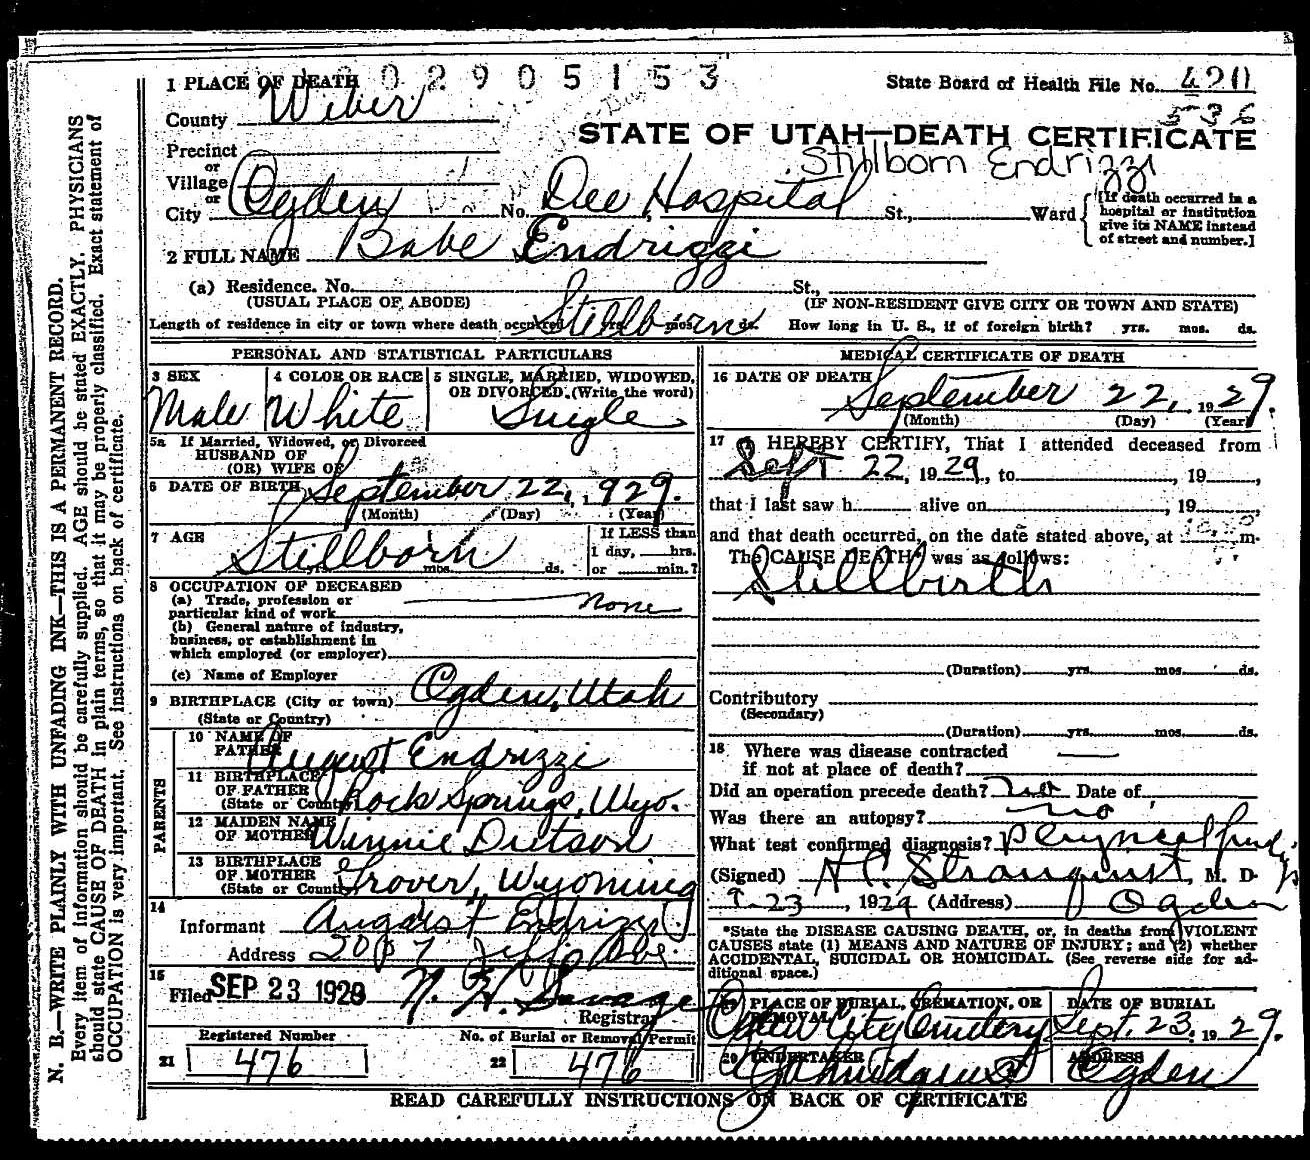 1 PLACE OF DEATH 0 2 9 0 5 1 5 3 State Board of Health File No. 420
County Weber 536
STATE OF UTAH—DEATH CERTIFICATE
Precinct
Stillborn Endrizzi
or
Village
or
City Ogden No. Dee Hospital St., Ward [If death occurred in a hospital or institution give its NAME instead of street and number.]
2 FULL NAME Babe Endrizzi
(a) Residence. No. St.,
(USUAL PLACE OF ABODE) (IF NON-RESIDENT GIVE CITY OR TOWN AND STATE)
Length of residence in city or town where death occurred yrs. mos. ds. Stillborn How long in U. S., if of foreign birth? yrs. mos. ds.
PERSONAL AND STATISTICAL PARTICULARS
3 SEX 4 COLOR OR RACE 5 SINGLE, MARRIED, WIDOWED,
OR DIVORCED. (Write the word)
Male White Single
5a If Married, Widowed, or Divorced
HUSBAND OF
(OR) WIFE OF
6 DATE OF BIRTH September 22, 1929.
(Month) (Day) (Year)
7 AGE Stillborn mos. ds. If LESS than
1 day, hrs.
or min.?
8 OCCUPATION OF DECEASED
(a) Trade, profession or
particular kind of work none
(b) General nature of industry,
business, or establishment in
which employed (or employer)
(c) Name of Employer
9 BIRTHPLACE (City or town) Ogden, Utah
(State or Country)
PARENTS
10 NAME OF
FATHER August Endrizzi
11 BIRTHPLACE
OF FATHER
(State or Country) Rock Springs, Wyo.
12 MAIDEN NAME
OF MOTHER Winnie Dietson
13 BIRTHPLACE
OF MOTHER
(State or Country) Grover, Wyoming
14
Informant August Endrizzi
Address Jeff. Ave.
15
Filed SEP 23 1929 Savage
Registrar
Registered Number No. of Burial or Removal Permit
21 476 22 476
MEDICAL CERTIFICATE OF DEATH
16 DATE OF DEATH
September 22, 1929.
(Month) (Day) (Year)
17 I HEREBY CERTIFY, That I attended deceased from
Sept 22, 1929, to , 19 ,
that I last saw h alive on , 19 ,
and that death occurred, on the date stated above, at m.
The CAUSE DEATH* was as follows:
Stillbirth
(Duration) yrs. mos. ds.
Contributory
(Secondary)
(Duration) yrs. mos. ds.
18 Where was disease contracted
if not at place of death?
Did an operation precede death? no Date of
Was there an autopsy? no
What test confirmed diagnosis?
(Signed) Stranquist, M. D.
9-23, 1929 (Address) Ogden
*State the DISEASE CAUSING DEATH, or, in deaths from VIOLENT
CAUSES state (1) MEANS AND NATURE OF INJURY; and (2) whether
ACCIDENTAL, SUICIDAL OR HOMICIDAL. (See reverse side for ad-
ditional space.)
19 PLACE OF BURIAL, CREMATION, OR REMOVAL DATE OF BURIAL
Ogden City Cemetery Sept. 23. 1929.
20 UNDERTAKER ADDRESS
Ogden
READ CAREFULLY INSTRUCTIONS ON BACK OF CERTIFICATE
N. B.—WRITE PLAINLY WITH UNFADING INK—THIS IS A PERMANENT RECORD.
Every item of information should be carefully supplied. AGE should be stated EXACTLY. PHYSICIANS
should state CAUSE OF DEATH in plain terms, so that it may be properly classified. Exact statement of
OCCUPATION is very important. See instructions on back of certificate.